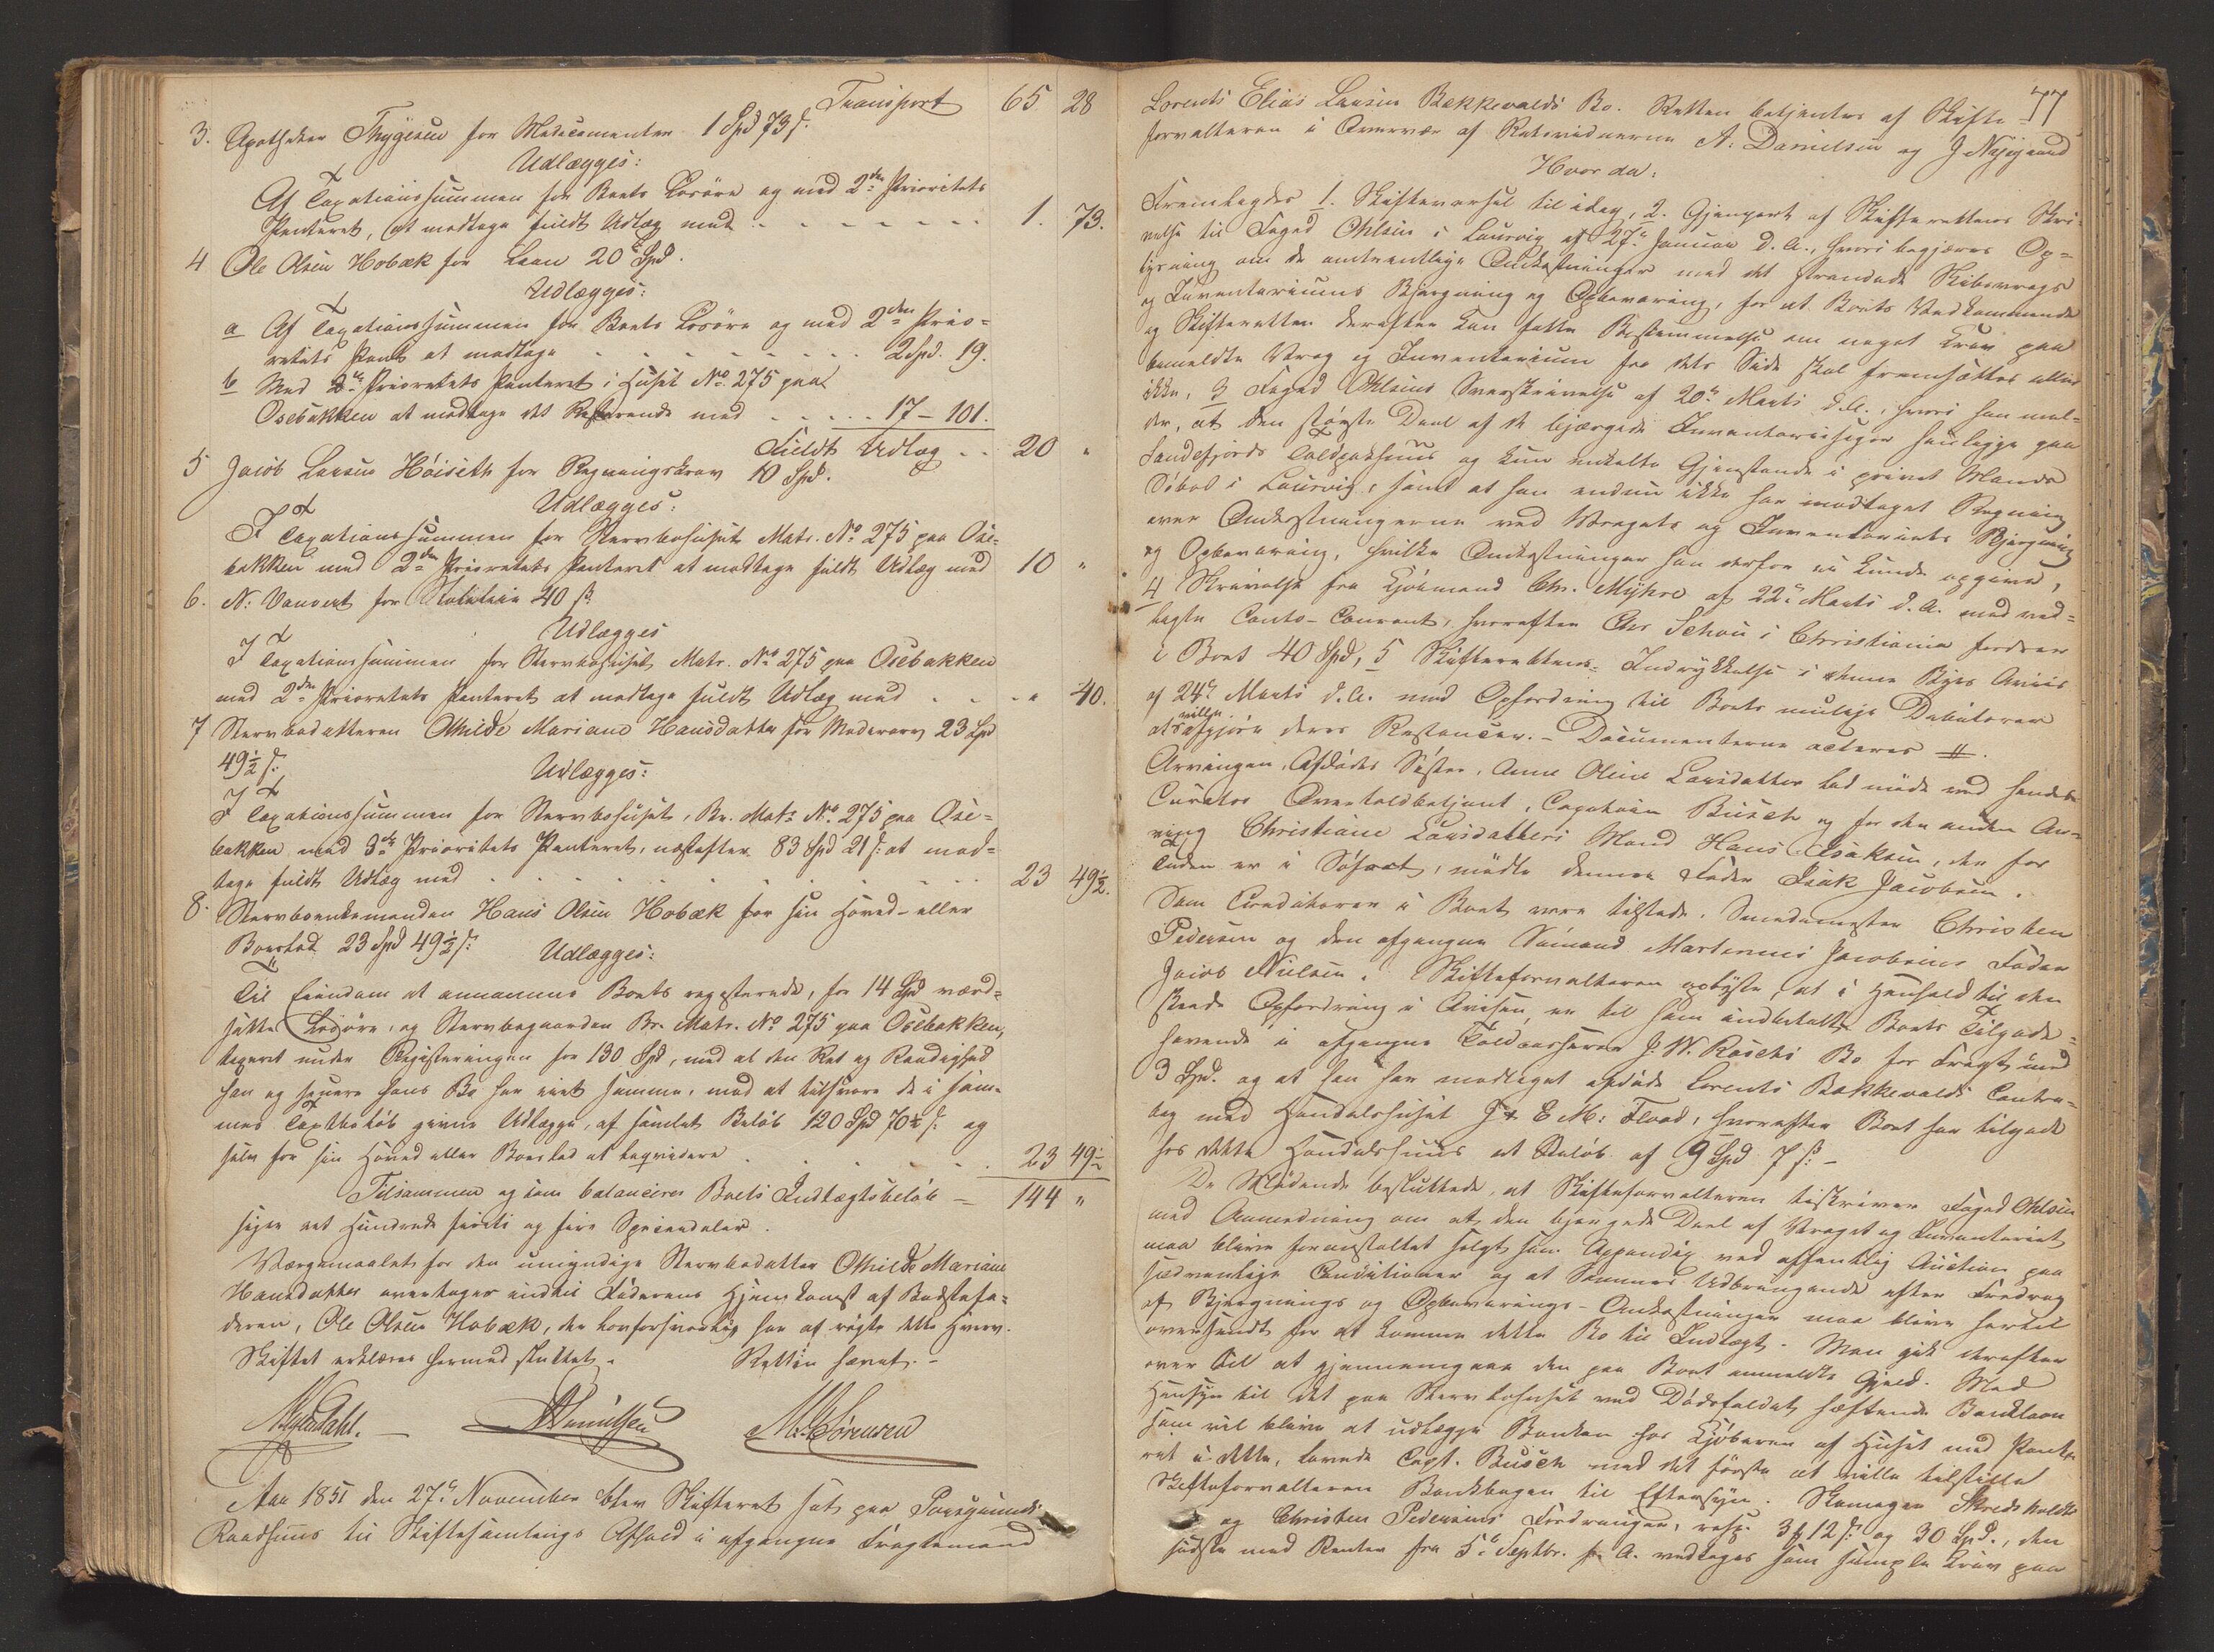 Transport 65 28
3. Apotheker Thygesen for Medicamenter 1 Spd 73 s.
Udlægges:
Af Taxationssummen for Boets Losøre og med 2den Prioritets
Panteret, at modtage fuldt Udlæg med 1. 73.
4 Ole Olsen Hobæk for Laan 20 Spd.
Udlægges:
a Af Taxationssummen for Boets Losøre og med 2den Prio-
ritets Pant at modtage 2 Spd. 19.
b Med 2de Prioritets Panteret i Huset No. 275 paa
Osebakken at modtage det Resterende med 17 – 101.
Fuldt Udlæg 20 "
5 Jacob Larsen Høiseth for Regningskrav 10 Spd.
Udlægges:
I Taxationssummen for Stervbohuset Matr. No 275 paa Ose-
bakken med 2den Prioritets Panteret at modtage fuldt Udlæg med 10 "
6. N: Vauvert for 40 s
Udlægges
I Taxationssummen for Stervbohuset Matr. No 275 paa Osebakken
med 2den Prioritets Panteret at modtage fuldt Udlæg med " 40.
7 Stervbodatteren Othilde Mariane Hansdatter for Moderarv 23 Spd
49½ s:
Udlægges:
I Taxationssummen for Stervbohuset, Br. Matr. No. 275 paa Ose-
bakken med 3die Prioritets Panteret, næstefter 83 Spd 21 s: at mod-
tage fuldt Udlæg med 23 49½.
8. Stervboenkemanden Hans Olsen Hobæk for sin Hoved- eller
Boeslod 23 Spd 49½ s:
Udlægges:
Til Eiendom at annamme Boets registerede, for 14 Spd værd-
satte Losøre, og Stervbogaarden Br. Matr. No 275 paa Osebakken,
taxeret under Registeringen for 130 Spd, med al den Ret og Raadighed
han og hans Bo har eiet samme, mod at tilsvare de i sam-
mes Taxtbeløb givne Udlægge, af samlet Beløb 120 Spd 70½ s: og
selv for sin Hoved eller Boeslod at liqvidere 23 49½
Tilsammen og som balancerer Boets Indtægtsbeløb – 144 "
siger eet Hundrede firti og fire Speciedaler.
Værgemaalet for den umyndige Stervbodatter Othilde Mariane
Hansdatter overtages indtil Faderens Hjemkomst af Bedstefa-
deren, Ole Olsen Hobæk, der lovforsvarlig har at røgte dette Hverv.
Skiftet erklæres hermed sluttet. Retten hævet. –
ADanielsen MSørensen
Aar 1851 den 27de November blev Skifteret sat paa Porsgrunds
Raadhuus til Skiftesamlings Afhold i afgangne Fragtemand
77
Lorents Elias Larsen Bækkevolds Bo. Retten betjentes af Skifte-
forvalteren i Overvær af Retsvidnerne A. Danielsen og J Nygaard
Hvor da:
Fremlagdes 1. Skiftevarsel til idag, 2. Gjenpart af Skifterettens Skri-
velse til Foged Ohlsen i Laurvig af 27de Januar d.A., hvori begjæres Op-
lysning om de omtrentlige Omkostninger med det strandede Skibsvrags
og Inventariums Bjergning og Opbevaring, for at Boets Vedkommende
og Skifteretten derefter kan fatte Bestemmelse om noget Krav paa
bemeldte Vrag og Inventarium fra dets Side skal fremsættes eller
ikke, 3 Foged Ohlsens Svarskrivelse af 20de Marts d.A., hvori han mel-
der, at den største Deel af de bjærgede Inventariesager henligge paa
Sandefjords Toldpakhuus og kun enkelte Gjenstande i privat Mands
Søbod i Laurvig, samt at han endnu ikke har modtaget Regning
over Omkostningerne ved Vragets og Inventariets Bjergning
og Opbevaring, hvilke Omkostninger han derfor ei kunde opgive,
4 Skrivelse fra Kjøbmand Chr. Myhre af 22de Marts d.A. med ved-
lagte Conto-Courant, hvorefter Chr Schou i Christiania fordrer
i Boet 40 Spd, 5 Skifterettens Indrykkelse i denne Byes Aviis
af 24de Marts d.A. med Opfordring til Boets mulige Debitorer
at ville afgjøre deres Restancer. – Documenterne acteres #.
Arvingen, Afdødes Søster, Anne Oline Larsdatter lod møde ved hendes
Curator Overtoldbetjent, Capitain Busch og for den anden Ar-
ving Christiane Larsdatters Mand Hans Isaksen, der for
Tiden er i Søfart, mødte dennes Fader Isak Jacobsen.
Som Creditorer i Boet vare tilstede, Smedemester Christen
Pedersen og den afgangne Sømand Martinus Jacobsens Fader
Jacob Nielsen. Skifteforvalteren oplyste, at i Henhold til den
skeede Opfordring i Avisen, er til ham indbetalt Boets Tilgode-
havende i afgangne Toldcasserer J. W. Raschs Bo for Fragt med
3 Spd. og at han har modtaget afdøde Lorents Bækkevolds Contra-
bog med Handelshuset J & E M: Flood, hvorefter Boet har tilgode
hos dette Handelshuus et Beløb af 9 Spd 7 s: –
De Mødende besluttede, at Skifteforvalteren tilskriver Foged Ohlsen
med Anmodning om at den bjergede Deel af Vraget og Inventariet
maa blive foranstaltet solgt ved offentlig Auction paa
sædvanlige Conditioner og at Sammes Udbringende efter Fradrag
af Bjergnings og Opbevarings-Omkostninger maa blive hertil
oversendt for at komme dette Bo til Indtægt. Man gik derefter
over til at gjennemgaae den paa Boet anmeldte Gjæld. Med
Hensyn til det paa Stervbohuset ved Dødsfaldet hæftende Banklaan
som vil blive at udlægge Banken hos Kjøberen af Huset med Pante-
ret i dette, lovede Capt. Busch med det første at ville tilstille
Skifteforvalteren Bankbogen til Eftersyn. Skomager
og Christen Pedersens Fordringer, resp. 3 12 s: og 30 Spd., den
sidste med Renter fra 5te Septbr. f. A. vedtages som simple Krav paa